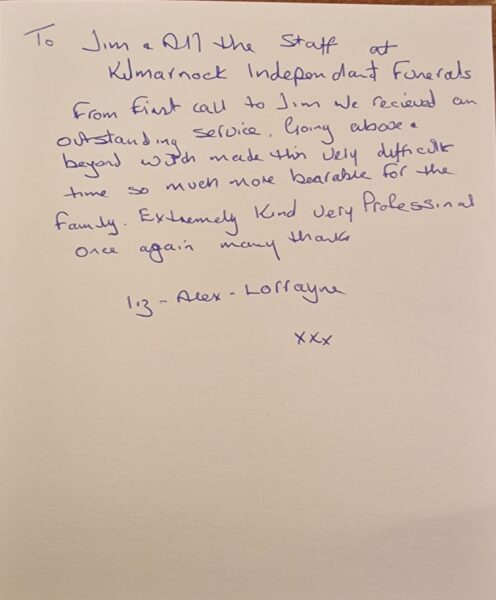 To Jim & All the Staff at
Kilmarnock Independant Funerals
From first call to Jim we recieved an
outstanding service. Going above &
beyond wich made this very difficult
time so much more bearable for the
family. Extremely Kind very Professinal
once again many thanks
Liz - Alex - Lorrayne
xxx